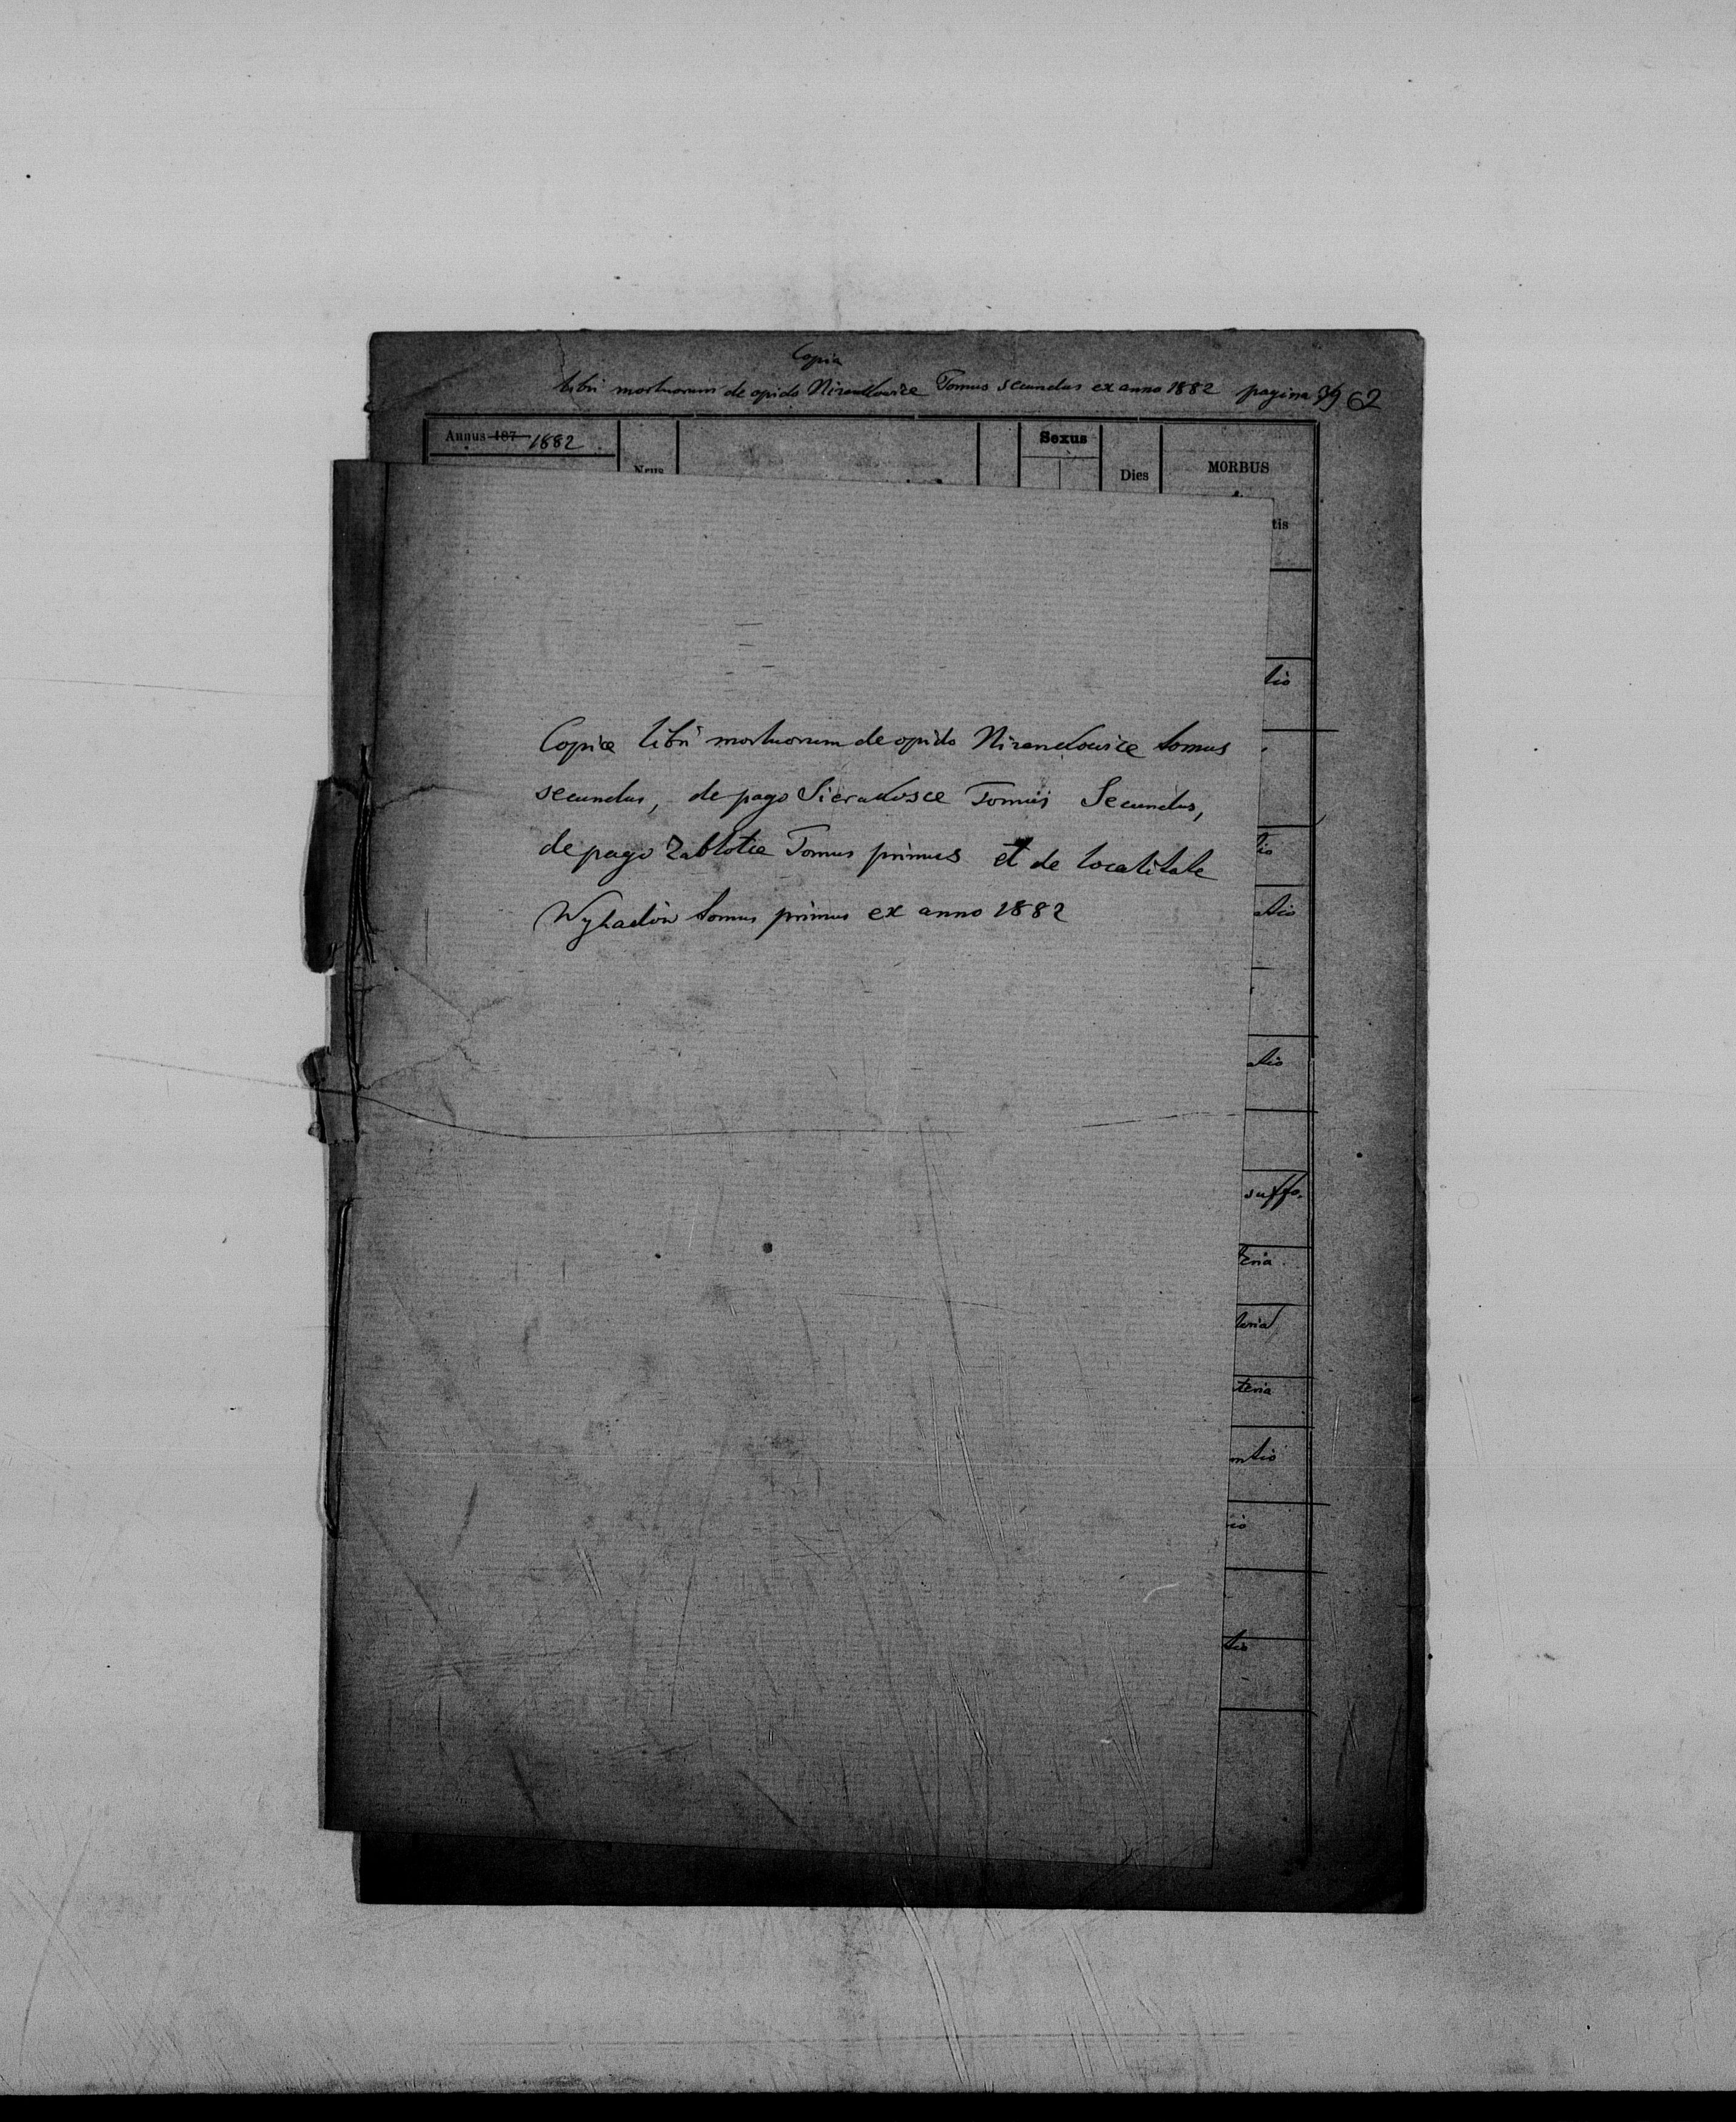 Copia
libri mortuorum de opido Nizankowice Tomus secundus ex anno 1882 pagina 79 62
Annus 187 1882
Sexus
Nrus
Dies
MORBUS
tis
tio
Copiae libri mortuorum de opido Nizankowice tomus
secundus, de pago Sierakosce Tomus Secundus,
de pago Zablotce Tomus primus et de localitate
Wyhadów tomus primus ex anno 1882
tio
atio
atio
suffo.
teria
teria
teria
ntio
io
tio